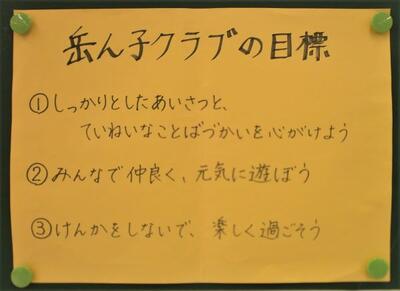 岳ん子クラブの目標
①しっかりとしたあいさつと、
ていねいなことばづかいを心がけよう
②みんなで仲良く、元気に遊ぼう
③けんかをしないで、楽しく過ごそう